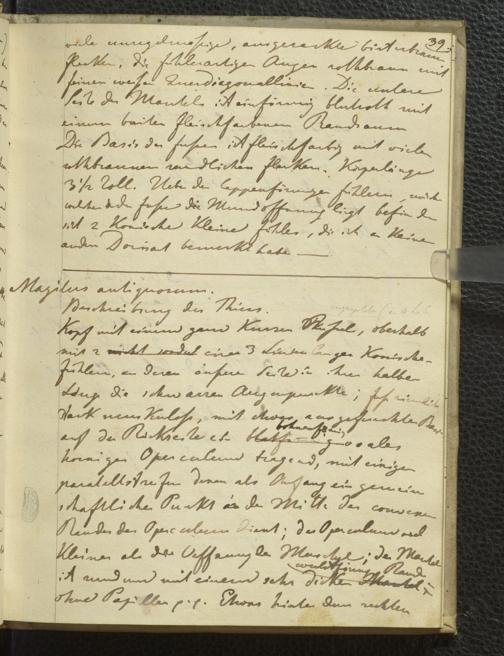 39.
viele unregelmäsige, ausgezackte
flecken, die fühlerartigen Augen rothbraun mit
feinen weisen Querdiagonallinien. Die untere
Seite des Mantels ist einförmig blutroth mit
einem breiten fleischfarbenen Randsaum
Die Basis des fuses ist fleischfarbig mit vielen
rothbraunen rundlichen flecken. Körperlänge
3½ Zoll. Unter den lappenförmigen fühlern,
die Mundöffnung liegt befinden
sich 2 Konische kleine fühler, die ich an keiner
andern Dorisart bemerkt habe —
Magilus antiquorum.
Beschreibung des Thiers.
Kopf mit einem ganz kurzen Rüsel, oberhalb
mit 2 3 Linien langen Konischen
fühlern, an deren äusere Seite in ihrer halben
Länge die schwarzen Augenpunkte;
stark muskulos, mit etwas ausgezackten
auf der Rückseite ein bohnenförmig ovales
horniges Operculum tragend, mit einigen
parallelstreifen denen als Anfang ein gemein
schaftlicher Punkt in der Mitte des convexen
Randes des Operculum dient; das Operculum
kleiner als die Oeffnung der Muschel; der Mantel
ist rund um mit einem sehr dicken wulstförmigen Rand
ohne Papillen p.p. Etwas hinter dem rechten